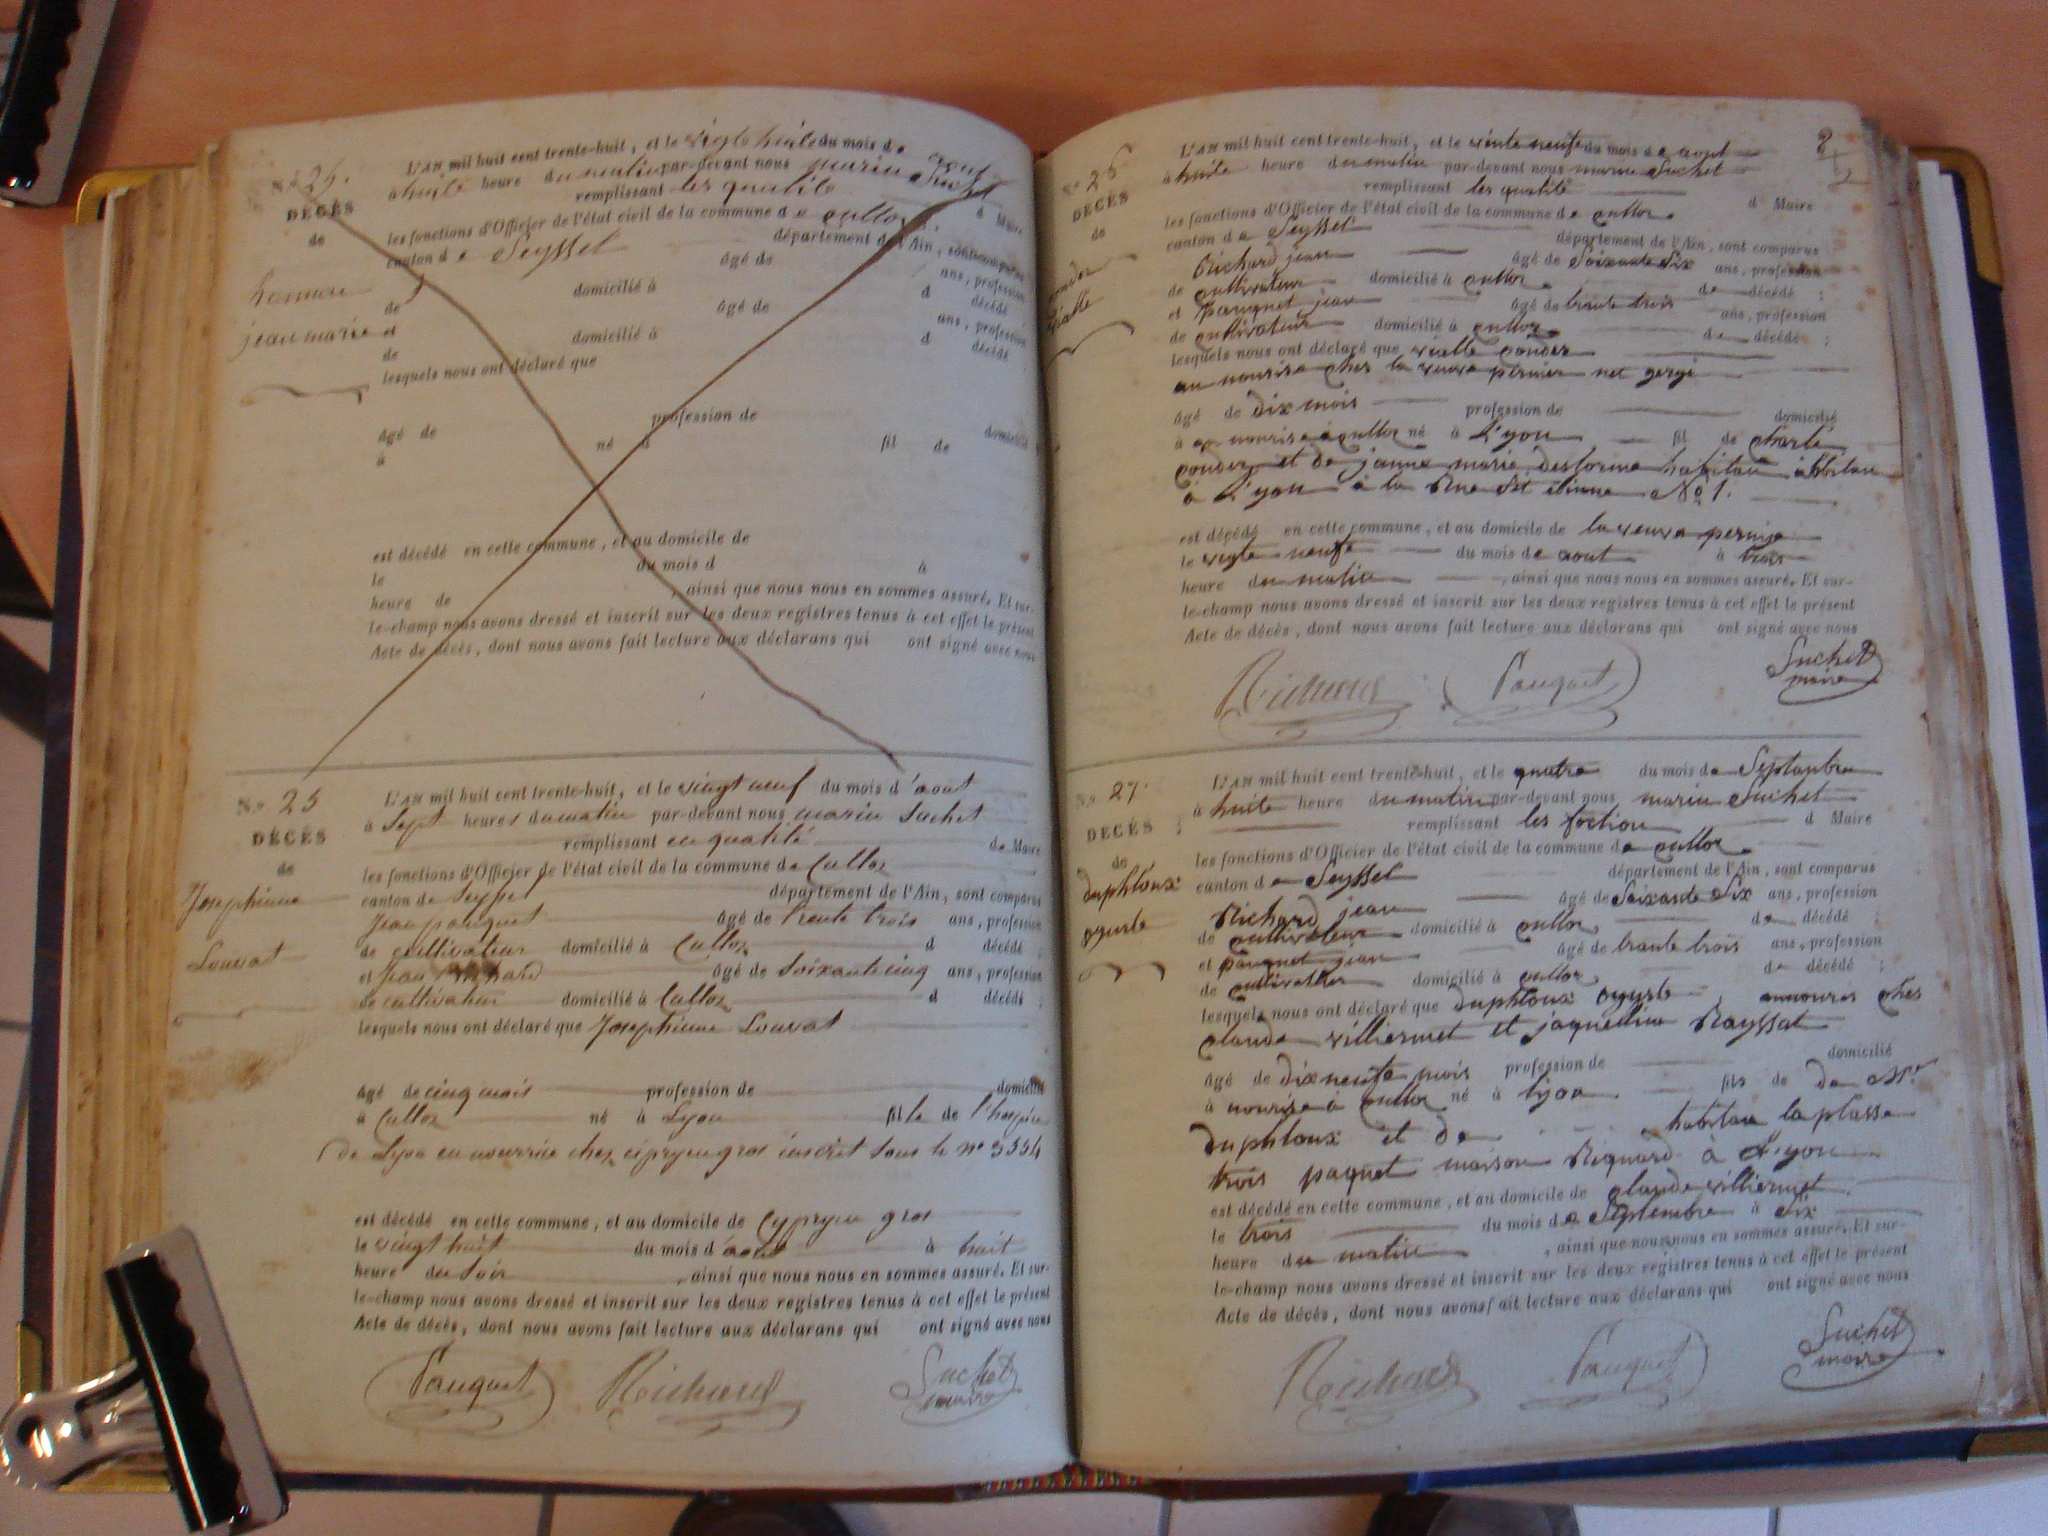 N.o 25.
DÉCÈS
de
hemmon
jean marie
L'AN mil huit cent trente-huit, et le vigte huite du mois de aout
à huite heure du matin par-devant nous marin Suchet
remplissant les qualité d Maire
les fonctions d'Officier de l'état civil de la commune de culloz
canton de Seyssel département de l'Ain, sont comparus
âgé de ans, profession
de domicilié à d décédé
et âgé de ans, profession
de domicilié à d décédé
lesquels nous ont déclaré que
âgé de profession de domicilié
à né à fil de
est décédé en cette commune, et au domicile de
le du mois d à
heure de , ainsi que nous nous en sommes assuré. Et sur-
le-champ nous avons dressé et inscrit sur les deux registres tenus à cet effet le présent
Acte de décès, dont nous avons fait lecture aux déclarans qui ont signé avec nous
N.o 25
DÉCÈS
de
Josephinne
Louvat
L'AN mil huit cent trente-huit, et le vingt neuf du mois d'aout
à Sept heures du matin par-devant nous marin Suchet
remplissant en qualité de Maire
les fonctions d'Officier de l'état civil de la commune de Culloz
canton de Seyssel département de l'Ain, sont comparus
Jean pauquet âgé de trente trois ans, profession
de cultivateur domicilié à Culloz d décédé ;
et Jean Richard âgé de Soixante cinq ans, profession
de cultivateur domicilié à Culloz d décédé ;
lesquels nous ont déclaré que Josephinne Louvat
âgé de cinq mois profession de domicilié
à Culloz né à Lyon fille de l'hospice
de Lyon en nourrice chez cipryen gros inscrit sous le no 3554
est décédé en cette commune, et au domicile de Cypryen gros
le vingt huit du mois d'aout à huit
heure du Soir , ainsi que nous nous en sommes assuré. Et sur-
le-champ nous avons dressé et inscrit sur les deux registres tenus à cet effet le présent
Acte de décès, dont nous avons fait lecture aux déclarans qui ont signé avec nous
Pauquet Richard Suchet
maire
2
N.o 26
DÉCÈS
de
L'AN mil huit cent trente-huit, et le vinte neufe du mois de aout
à huite heure du matin par-devant nous marin Suchet
remplissant les qualité d Maire
les fonctions d'Officier de l'état civil de la commune de culloz
canton de Seyssel département de l'Ain, sont comparus
Richard jean âgé de Soixante Six ans, profession
de cultivateur domicilié à culloz de décédé ;
et pauquet jean âgé de trante trois ans, profession
de cultivateur domicilié à culloz de décédé ;
lesquels nous ont déclaré que vialle conder
au nourise cher la veuve pernier net gergi
âgé de dix mois profession de domicilié
à en nourise à culloz né à L'yon fil de charle
conder et de janne marie desforme habitan
à L'yon à la Rue St etienne No 1.
est décédé en cette commune, et au domicile de la veuve pernier
le vigte neufe du mois de aout à trois
heure du matin , ainsi que nous nous en sommes assuré. Et sur-
le-champ nous avons dressé et inscrit sur les deux registres tenus à cet effet le présent
Acte de décès, dont nous avons fait lecture aux déclarans qui ont signé avec nous
Richard Pauquet Suchet
maire
N.o 27.
DÉCÈS
de
duphtoux
oguste
L'AN mil huit cent trente-huit, et le quatre du mois de Septanbre
à huite heure du matin par-devant nous marin Suchet
remplissant les foction d Maire
les fonctions d'Officier de l'état civil de la commune de culloz
canton de Seyssel département de l'Ain, sont comparus
Richard jean âgé de Soixante Six ans, profession
de cultivateur domicilié à culloz de décédé ;
et pauquet jean âgé de trante trois ans, profession
de domicilié à culloz de décédé ;
lesquels nous ont déclaré que duphtoux oguste annouris ches
claude villiermet et jaqueline Rayssat
âgé de dix neufe mois profession de domicilié
à nourise à culloz né à lyon fils de de Mr
duphtoux et de habitan la plasse
trois paquet maison Riquard à L'yon
est décédé en cette commune, et au domicile de claude villiermet
le trois du mois de Septembre à Six
heure du matin , ainsi que nous nous en sommes assuré. Et sur-
le-champ nous avons dressé et inscrit sur les deux registres tenus à cet effet le présent
Acte de décès, dont nous avons fait lecture aux déclarans qui ont signé avec nous
Richard Pauquet Suchet
maire